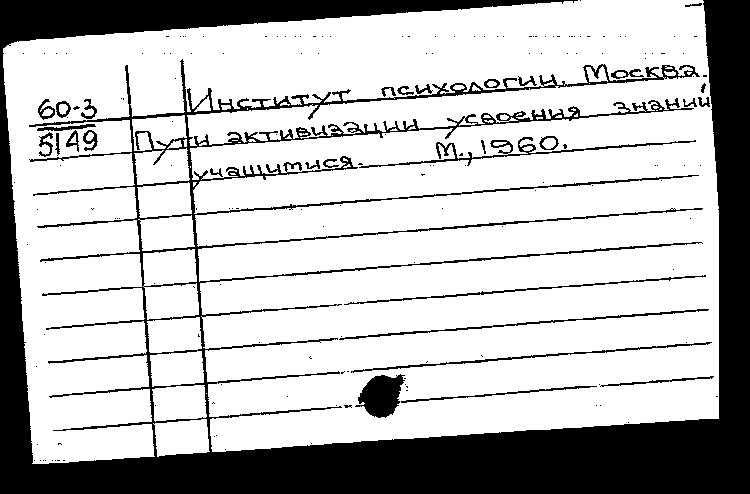 60-3
5149
Институт психологии. Москва.
Пути активизации усвоения знаний
учащимися. М., 1960.